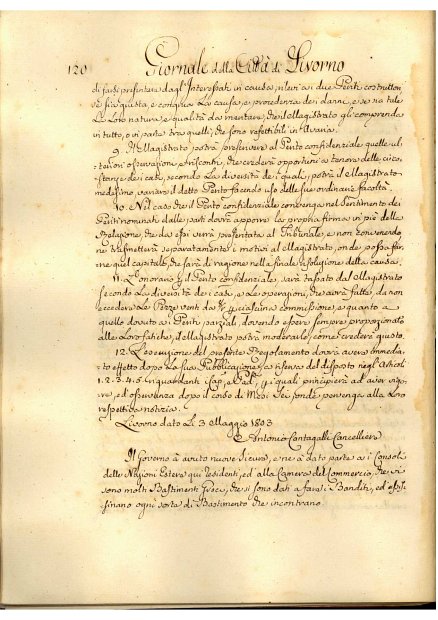 120 Giornale della Città di Livorno
di farsi presentare dagl'Interessati in causa, rilevi ai due Periti costruttori
se sia giusta, e congrua la causa, e procedenza dei danni, e se na tale
la loro natura, e qualità da meritare, che il Magistrato gli comprenda
in tutto, o in parte tra quelli, che sono refettibili in Avaria.
9. Il Magistrato potrà prescrivere al Perito confidenziale quelle ul-
teriori osservazioni, e riscontri, che crederà opportuni a tenore delle circo-
stanze dei casi, secondo la diversità de' quali, potrà il Magistrato
medesimo, variare il detto Perito facendo uso delle sue ordinarie facoltà.
10. Nel caso che il Perito confidenziale convenga nel Sentimento dei
Periti nominati dalle parti dovrà apporre la propria firma in piè della
Relazione, che da essi verrà presentata al Tribunale, e non convenendo
ne trasmetterà separatamente i motivi al Magistrato, onde possa far-
ne quel capitale, che sarà di ragione nella finale risoluzione della causa.
11. L'onorario del Perito confidenziale, sarà tassato dal Magistrato
secondo la diversità dei casi, e le operazioni, che avrà fatte, da non
eccedere le Pezze venti da 8/r per ciascuna commissione, e quanto a
quello dovuto ai Periti parziali, dovendo essere sempre proporzionato
alle loro fatiche, il Magistrato potrà moderarlo, come crederà giusto.
12. L'esecuzione del presente Regolamento dovrà avere immedia-
to effetto dopo la sua Pubblicazione, a riserva del disposto negl'Articoli
1. 2. 3. 4. 5. inquadranti i Cap. e Pad. per i quali principierà ad aver vigo-
re, ed osservanza dopo il corso di Mesi Sei, onde pervenga alla loro
respettiva notizia.
Livorno dato Li 3 Maggio 1803
Antonio Contagalli Cancelliere
Il Governo à avuto nuove sicure, e ne à dato parte a i Consoli
delle Nazioni Estere qui residenti, ed alla Camera del Commercio, che vi
sono molti Bastimenti Greci, che si sono dati a farsi Banditi, ed assas-
sinano ogni sorta di Bastimento che incontrano.